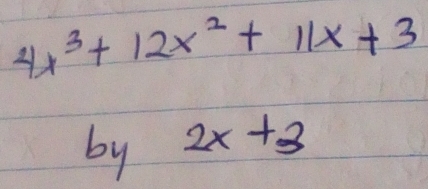 4x³ + 12x² + 11x + 3
by 2x + 3